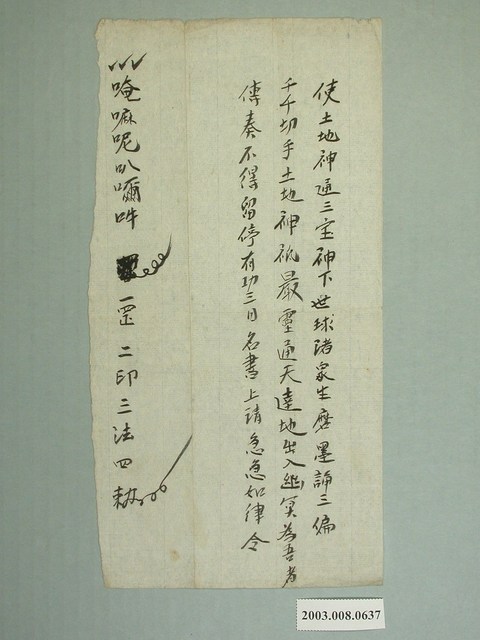 使土地神通三宝神下世球諸衆生磨墨誦三徧
千千切手土地神祇最靈通天達地出入幽冥為吾者
傳奏不得留停有功三日名書上請急急如律令
唵嘛呢叭嚩吽 一罡二印三法四敕
2003.008.0637